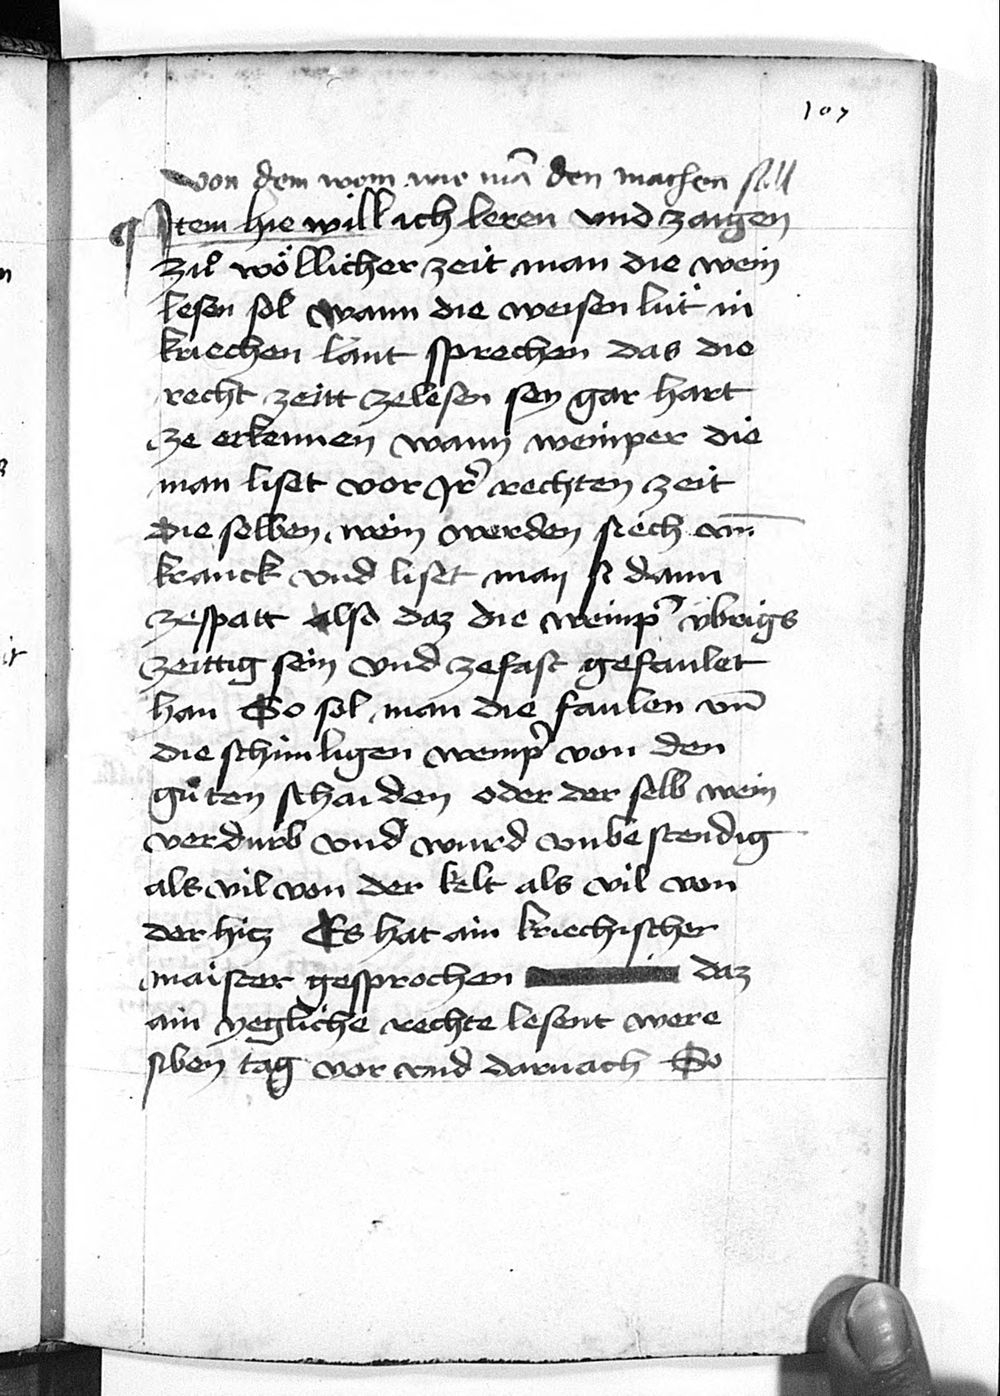 107
Von dem wein wie mā den machen sill
¶ Item hie will ich leren vnd zaigen
zů wöllicher zeit man die wein
lesen sol wann die weisen lüt in
kriechen lant sprechen das die
recht zeitt zelesen sey gar hart
ze erkennen wann weinper die
man liset vor Jr̄ rechten zeit
die selben wein werden siech vn̄
kranck vnd liset man si dann
zespatt also daz die weinp̄ vbrigs
zeittig sein vnd zefast gefaulet
han So sol man die faulen vn̄
die schimligen weinp̄ von den
gůten schaiden oder der selb wein
verdurb vnd wurd vnbestendig
als vil von der kelt als vil von
der hitz Es hat ain kriechischer
maister gesprochen daz
ain yegliche rechte lesent were
siben tag vor vnd darnach So